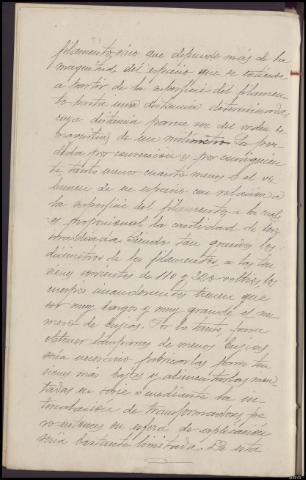 filamento sino que depende más de la
magnitud del espacio que se extiende
a partir de la superficie del filamen-
to hasta una distancia determinada,
cuya distancia parece ser del orden
de un milímetro. La per-
dida por conveccion y por consiguien-
te tanto menor cuanto menor es el vo-
lumen de ese espacio con relación a
la superficie del filamento, a la cual
es proporcional la cantidad de luz
Siendo tan grandes los
diámetros de los filamentos, a las ten-
siones corrientes de 110 y 220 voltios, los
cuerpos incandescentes tienen que
ser muy largos y muy grande el nú-
mero de bujías. Por lo tanto, para
obtener lámparas de menos bujías
sería necesario fabricarlas para ten-
siones más bajas y alimentarlas mon-
tadas en serie o mediante la in-
tercalación de transformadores, pe-
ro entonces su esfera de aplicación
sería bastante limitada. De esta